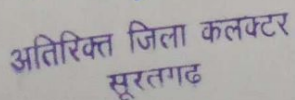 अतिरिक्त जिला कलक्टर
सूरतगढ